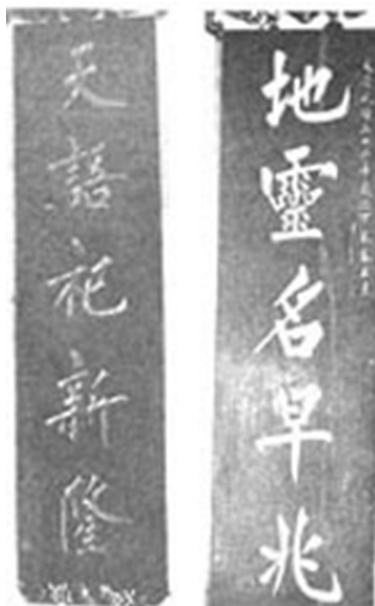 地靈名早兆
天語祀新隆